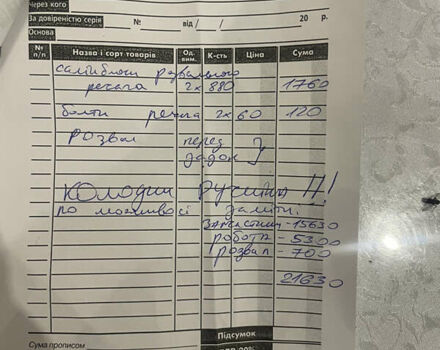 Через кого
За довіреністю серія № від / / 20 р.
Основа
№ п/п Назва і сорт товарів Од. вим. К-сть Ціна Сума
сайлнблоки розвального
речага 2 x 880 1760
болти речага 2 x 60 120
Розвал перед
задок }
КОЛОДКИ РУЧНІКА !!!
по можливості заміти.
ЗАПЧАСТИНИ - 15630
РОБОТА - 5300
РОЗВАЛ - 700
21630
Підсумок
Сума прописом